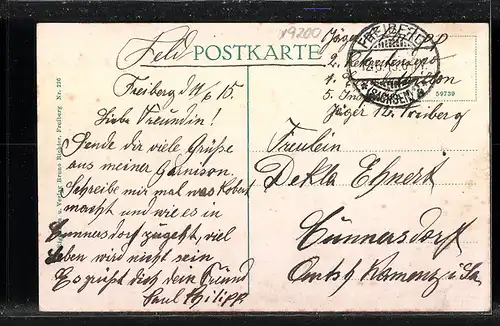 19200
Feld POSTKARTE
Freiberg d 11/6 15.
Liebe Freundin!
Sende dir viele Grüße
aus meiner Garnison.
Schreibe mir mal was Robert
macht und wie es in
Cunnersdorf zugeht, viel
Leben wird nicht sein
Es grüßt dich dein Freund
Paul Philipp
u. Verlag Bruno Richter, Freiberg Nr. 216
FREIBERG
(SACHSEN)
Jäger
2. Rekrutendepot
5.
Jäger 12. Freiberg
59739
Fräulein
Dekla Ehnert
Cunnersdorf
Amtsh Kamenz i/Sa